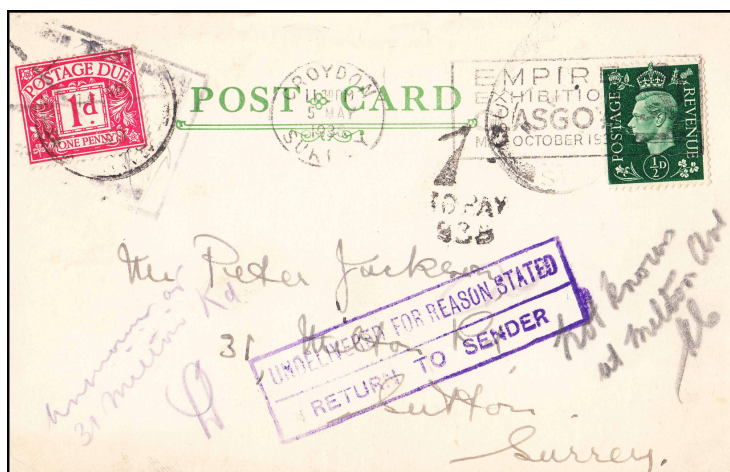 POSTAGE DUE
1d
ONE PENNY
POST CARD
CROYDON
5 MAY
SURREY
EMPIRE
EXHIBITION
GLASGOW
MAY OCTOBER
POSTAGE REVENUE
½D
1
TO PAY
93B
Mr Peter Jackson
31, Milton Rd
Sutton
Surrey.
UNDELIVERED FOR REASON STATED
RETURN TO SENDER
unknown at
31 Milton Rd
Not known
at Milton Ave